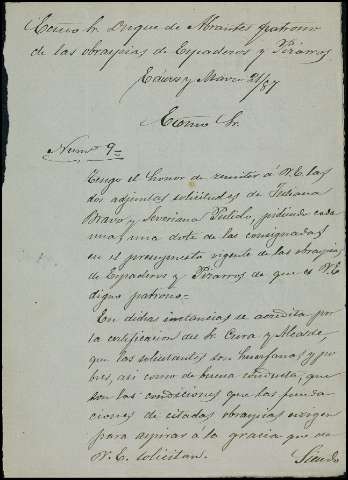 Excmo Sr. Duque de Abrantes patrono
de las obras pias de Espaderos y Pizarros
Cáceres y Marzo 21/87
Excmo Sr.
Num.º 9=
Tengo el honor de remitir á V.E. las
dos adjuntas solicitudes de Juliana
Bravo y Severiana Pulido, pidiendo cada
una, una dote de las consignadas
en el presupuesto vigente de las obras pias
de Espaderos y Pizarros de que es V.E.
digno patrono=
En dichas instancias se acredita por
la certificacion del Sr. Cura y Alcalde,
que las solicitantes son huerfanas y po-
bres, asi como de buena conducta, que
son las condiciones que las funda-
ciones de citadas obras pias exigen
para aspirar á la gracia que de
V.E. solicitan.
Siendo